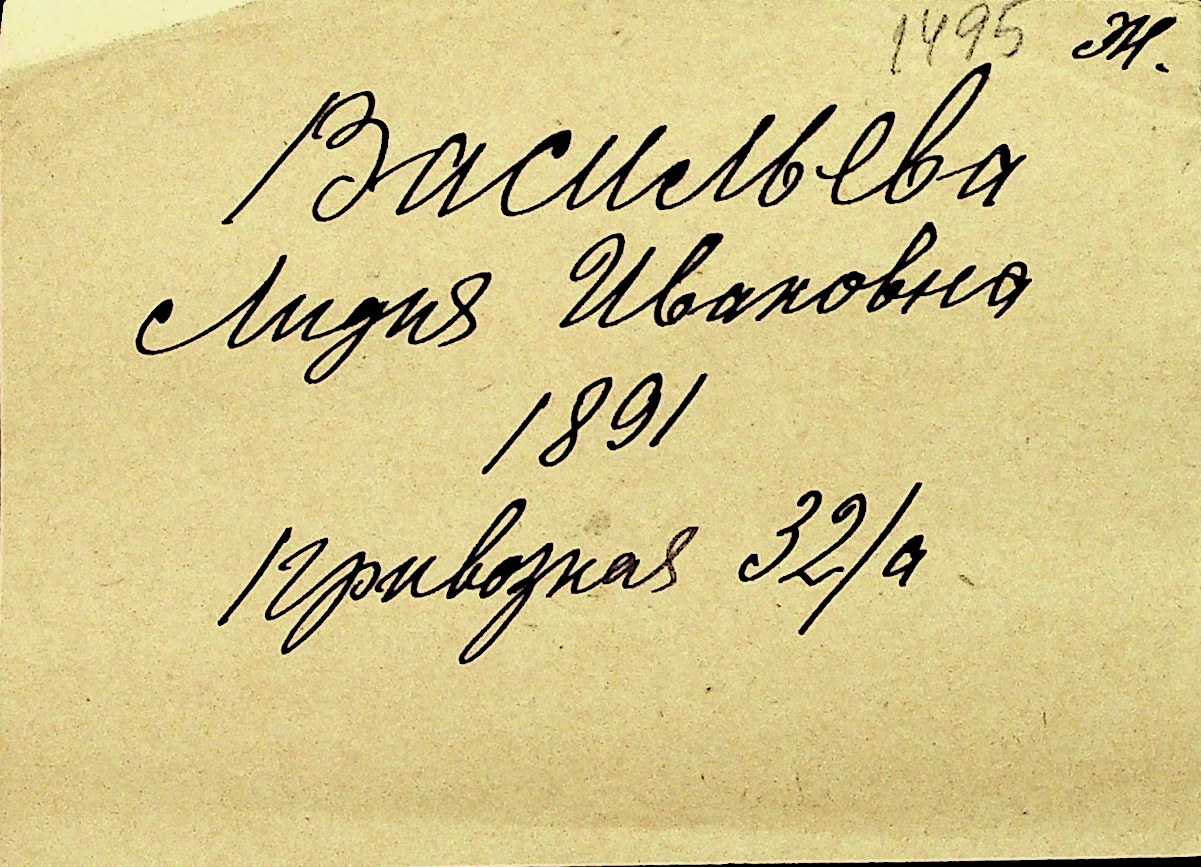 1495 Ж.
Васильева
Лидия Ивановна
1891
Привозная 32/а